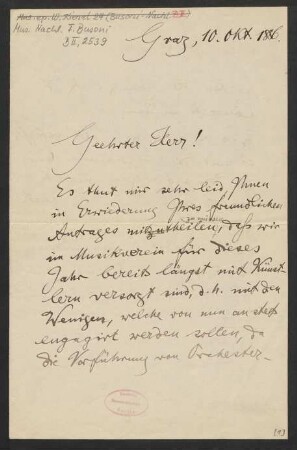 Mus. ep. W. Kienzl 29 (Busoni-Nachl.
Mus. Nachl. F. Busoni
B II, 2539
Graz, 10. Okt 1886.
Geehrter Herr!
Es thut mir sehr leid, Ihnen
in Erwiederung Ihres freundlichen
Antrages mitzutheilen, daß wir
im Musikverein für dieses
Jahr bereits längst mit Künst-
lern versorgt sind, d. h. mit den
Wenigen, welche von nun an stets
engagirt werden sollen, da
die Vorführung von Orchester-